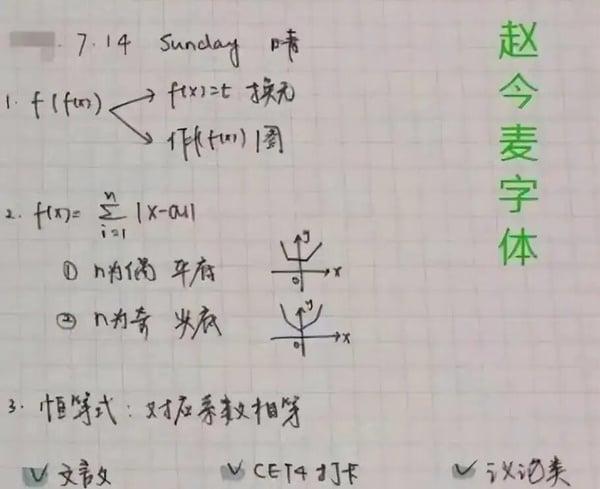 7.14 Sunday 晴
1. f(f(x)) → f(x)=t 换元
→ 作f(f(x))图
2. f(x)= ∑ i=1 n |x-ai|
① n为偶 平底
y
x
0
② n为奇 尖底
y
x
0
3. 恒等式:对应系数相等
✓文言文 ✓CET4打卡 ✓议论类
赵今麦字体